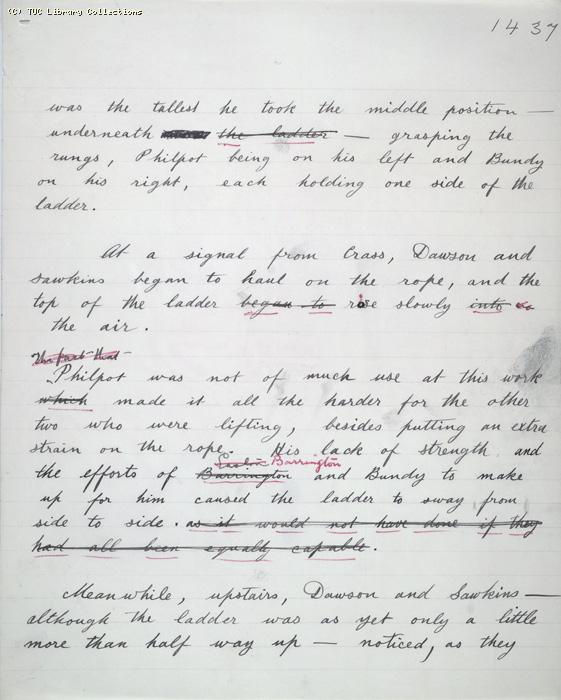 (C) TUC Library Collections
1437
was the tallest he took the middle position —
underneath the ladder — grasping the
rungs, Philpot being on his left and Bundy
on his right, each holding one side of the
ladder.
At a signal from Crass, Dawson and
Sawkins began to haul on the rope, and the
top of the ladder began to rose slowly into
the air.
The fact that
Philpot was not of much use at this work
which made it all the harder for the other
two who were lifting, besides putting an extra
strain on the rope. His lack of strength and
Barrington
the efforts of Barrington and Bundy to make
up for him caused the ladder to sway from
side to side. as it would not have done if they
had all been equally capable.
Meanwhile, upstairs, Dawson and Sawkins —
although the ladder was as yet only a little
more than half way up — noticed, as they